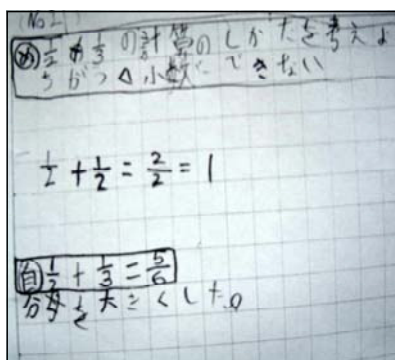 (No2)
め 1/2 + 1/3 の計算のしかたを考えよ
ちがう△小数でできない
1/2 + 1/2 = 2/2 = 1
自 1/2 + 1/3 = 5/6
分 を大きくした。